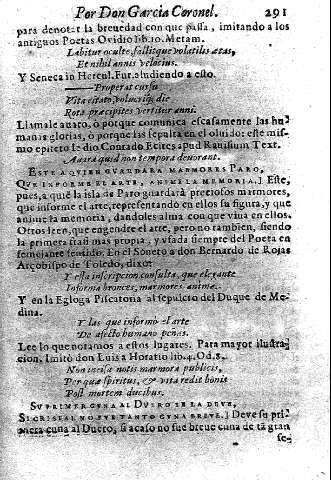 Por Don Garcia Coronel. 291
para denotar la breuedad con que passa, imitando a los
antiguos Poetas Ouidio lib. 10. Metam.
Labitur occulte, fallitque volatilis ætas,
Et nihil annis velocius.
Y Seneca in Hercul. Fur. aludiendo a esto.
Properat cursu
Vita citato, volucrique die
Rota præcipitis vertitur anni.
Llamale auaro, ò porque comunica escasamente las hu
manas glorias, ò porque las sepulta en el oluido: este mis
mo epiteto le dio Conrado apud Rauisium Text.
quid non tempora deuorant.
ESTE A QVIEN GVARDARA MARMORES PARO,
QVE INFORME EL ARTE, ANIME LA MEMORIA.] Este,
pues, a quiẽ la isla de Paro guardarà preciosos marmores,
que informe el arte, representando en ellos su figura, y que
anime la memoria, dandoles alma con que viua en ellos.
Otros leen, que engendre el arte, pero no tambien, siendo
la primera mas propia, y vsada siempre del Poeta en
semejante sentido. En el Soneto a don Bernardo de Rojas
Arçobispo de Toledo, dixo:
Y esta inscripcion consulta, que elegante
Informa bronces, marmores anima.
Y en la Egloga Piscatoria al sepulcro del Duque de Me
dina.
Y las que informò el arte
De afecto humano peñas.
Lee lo que notamos a estos lugares. Para mayor ilustra
cion. Imitò don Luis a Horatio lib. 4. Od. 8.
Non incisa notis marmora publicis,
Per quæ spiritus, & vita redit bonis
Post mortem ducibus.
SV PRIMER CVNA AL DVERO SE LA DEVE,
SI CRISTAL NO FVE TANTO CVNA BREVE.] Deue su pri
mera cuna al Duero, si acaso no fue breue cuna de tã gran
se-